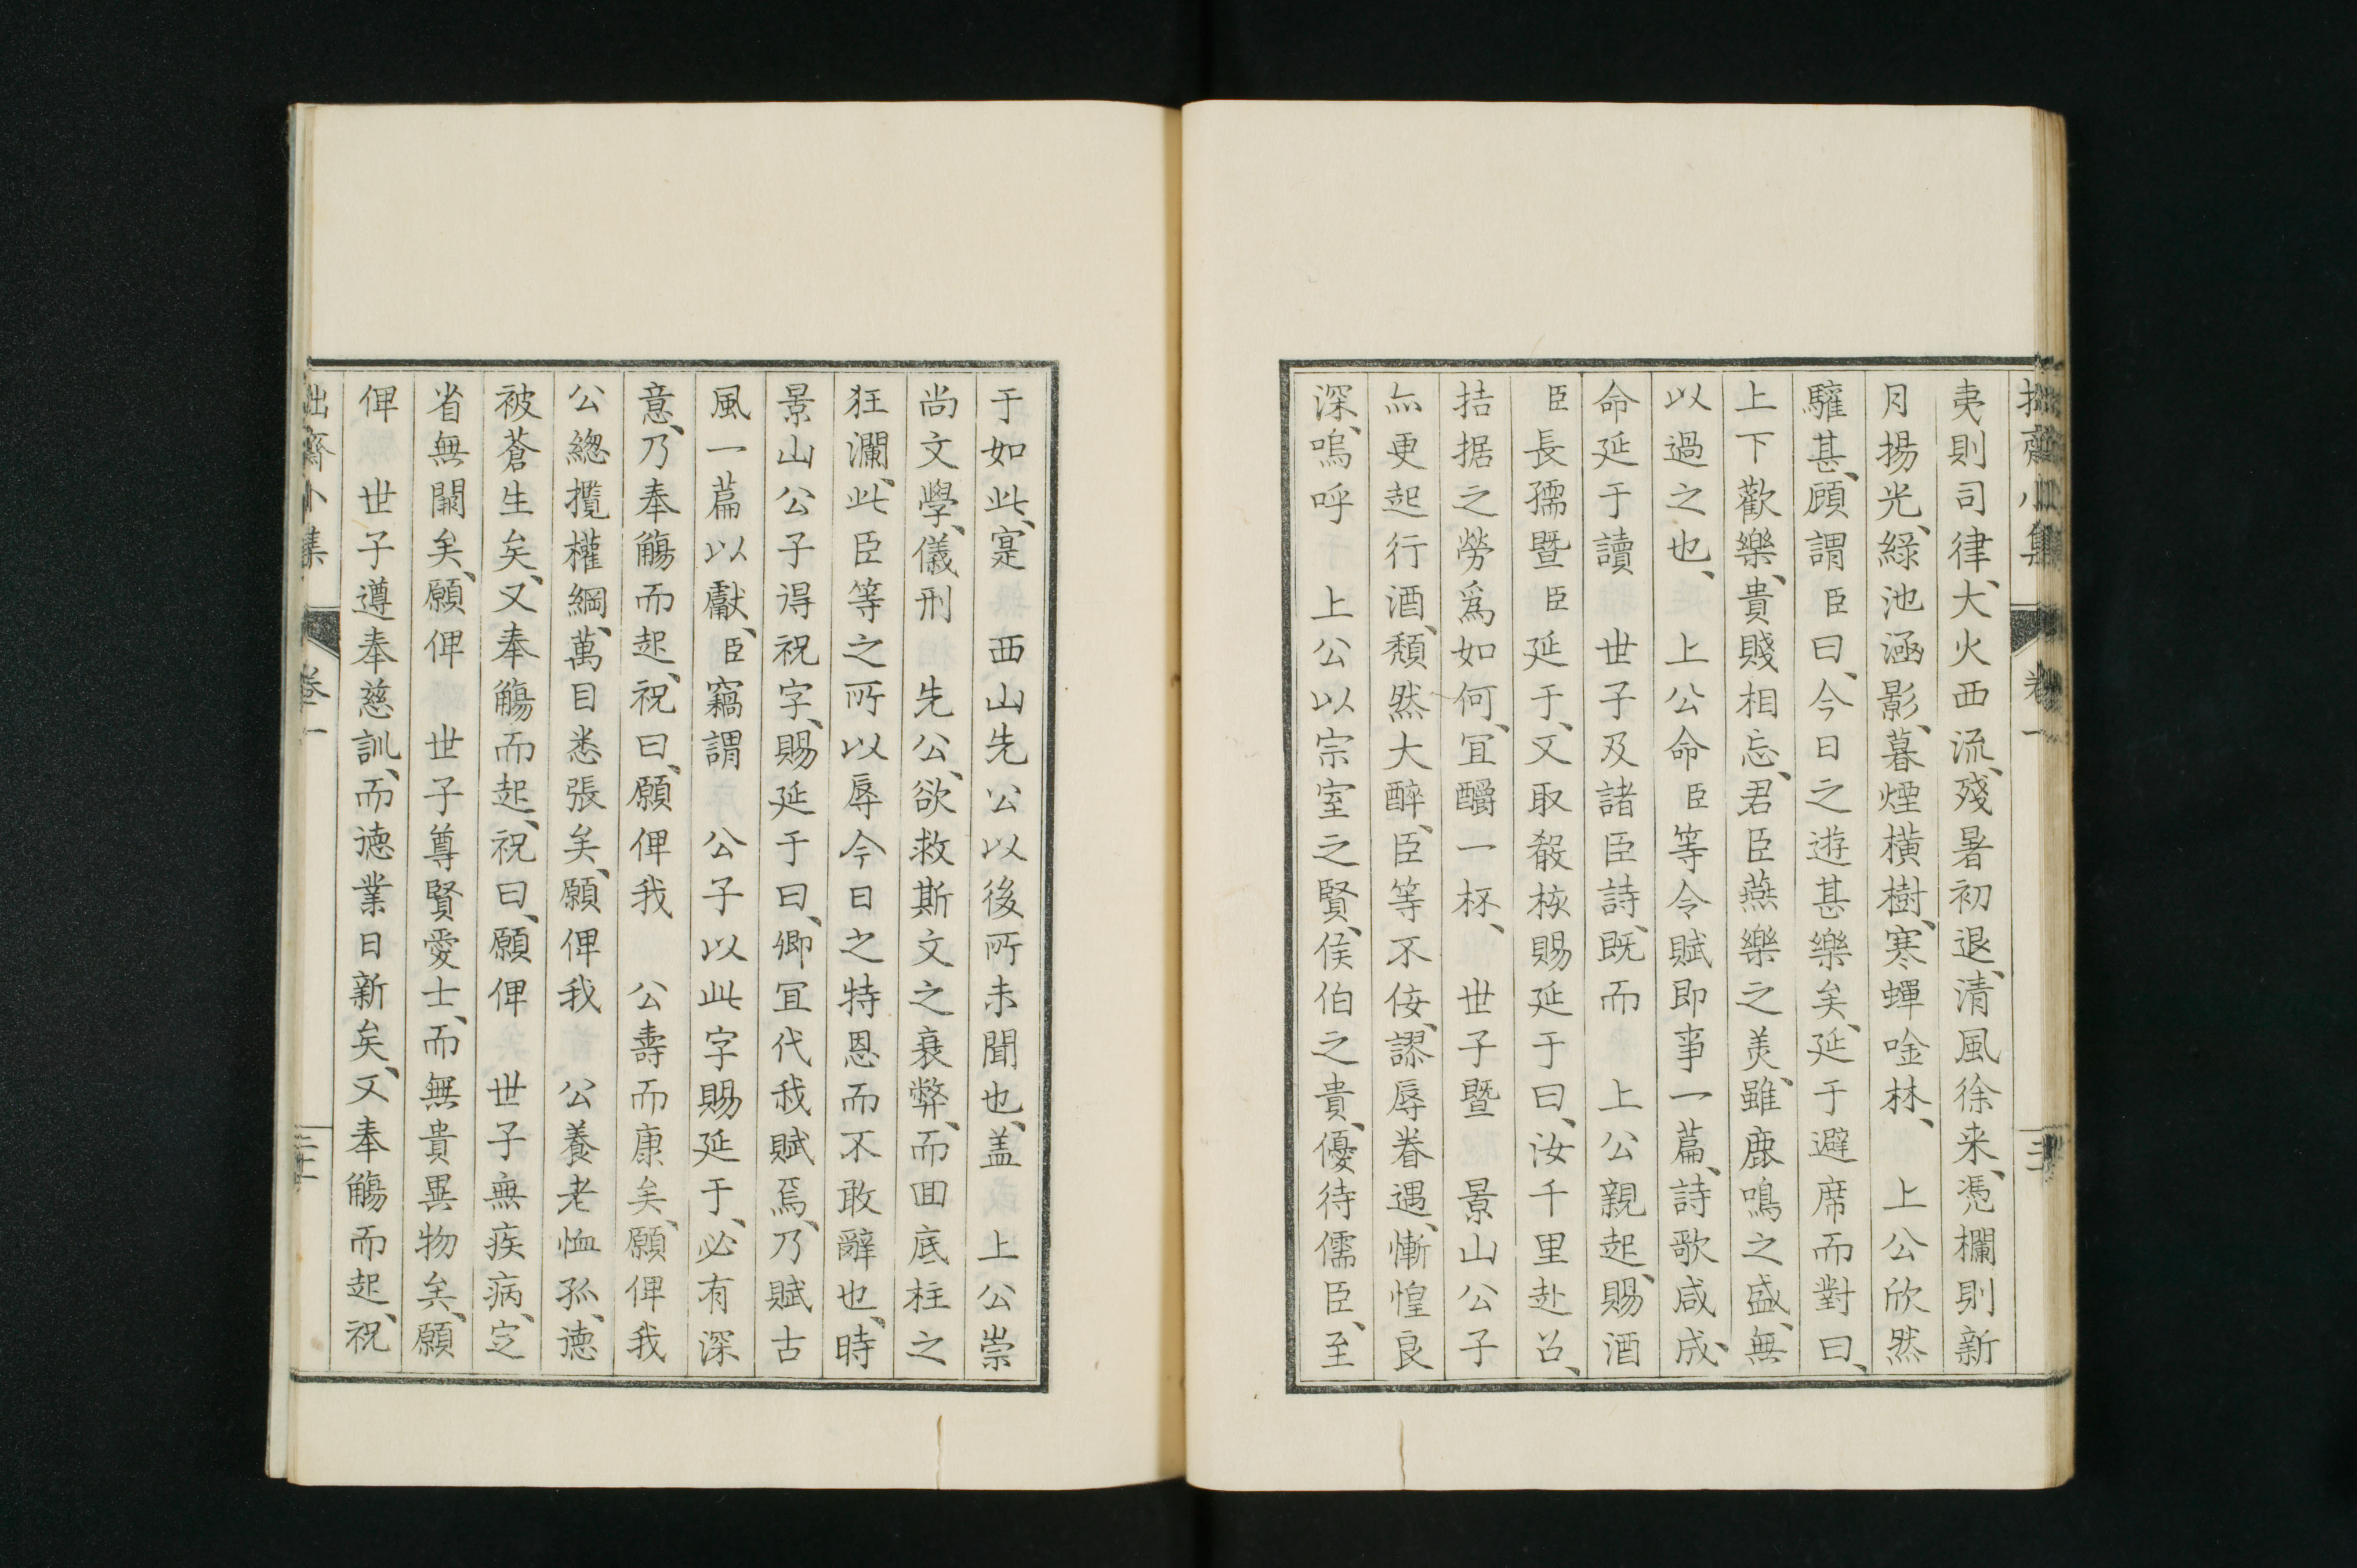 拙齋小集 卷一
夷則司律、大火西流、殘暑初退、清風徐来、憑欄則新
月揚光、綠池涵影、暮煙橫樹、寒蟬唫林、 上公欣然
驩甚、顧謂臣曰、今日之遊甚樂矣、延于避席而對曰、
上下歡樂、貴賤相忘、君臣燕樂之美、雖鹿鳴之盛、無
以過之也、 上公命臣等令賦即事一篇、詩歌咸成、
命延于讀 世子及諸臣詩、既而 上公親起、賜酒
臣長孺暨臣延于、又取殽核賜延于曰、汝千里赴召、
拮据之勞爲如何、宜釂一杯、 世子暨 景山公子
亦更起行酒、頽然大醉、臣等不佞、謬辱眷遇、慚惶良
深、嗚呼 上公以宗室之賢、侯伯之貴、優待儒臣、至
于如此、寔 西山先公以後所未聞也、盖 上公崇
尚文學、儀刑 先公、欲救斯文之衰弊、而回底柱之
狂瀾、此臣等之所以辱今日之特恩而不敢辭也、時
景山公子得祝字、賜延于曰、卿宜代我賦焉、乃賦古
風一篇以獻、臣竊謂 公子以此字賜延于、必有深
意、乃奉觴而起、祝曰、願俾我 公壽而康矣、願俾我
公總攬權綱、萬目悉張矣、願俾我 公養老恤孤、德
被蒼生矣、又奉觴而起、祝曰、願俾 世子無疾病、定
省無闕矣、願俾 世子尊賢愛士、而無貴異物矣、願
俾 世子遵奉慈訓、而德業日新矣、又奉觴而起、祝
拙齋小集 卷一